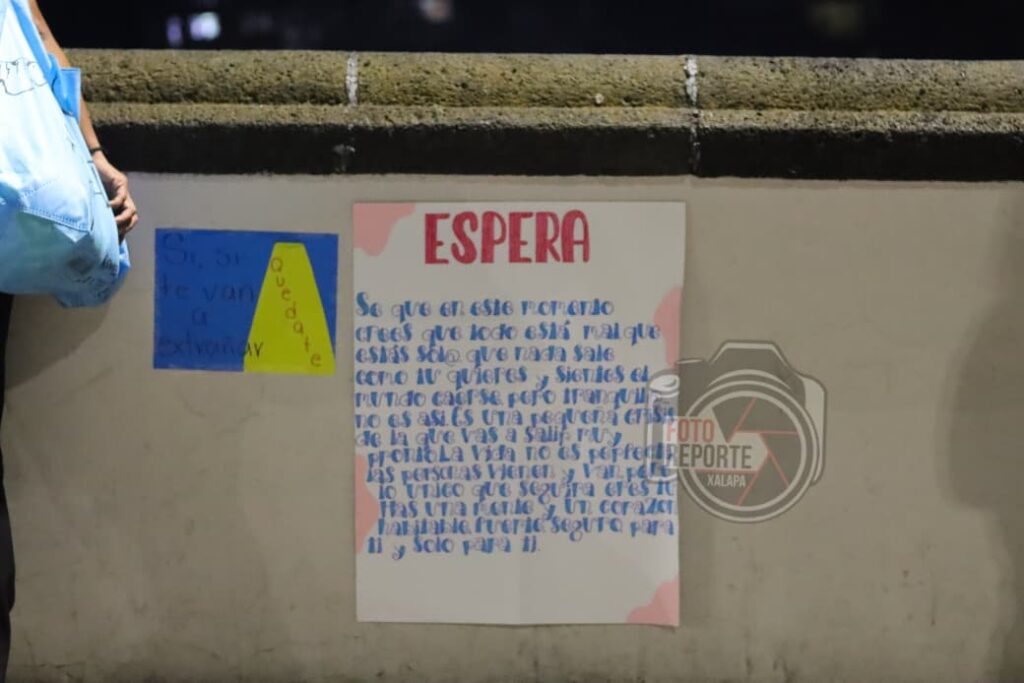 Si, si
te van
a
extrañar
Quedate
ESPERA
Se que en este momento
crees que todo está mal que
estás sol@ que nada sale
como tu quieres y sientes el
mundo caerse pero tranquil@
no es asi. Es una pequeña crisis
de la que vas a salir muy
pronto. La vida no es perfecta
las personas vienen y van pero
lo unico que seguira eres tu
Has una mente y un corazon
habitable fuerte seguro para
ti y solo para ti.
FOTO
REPORTE
XALAPA